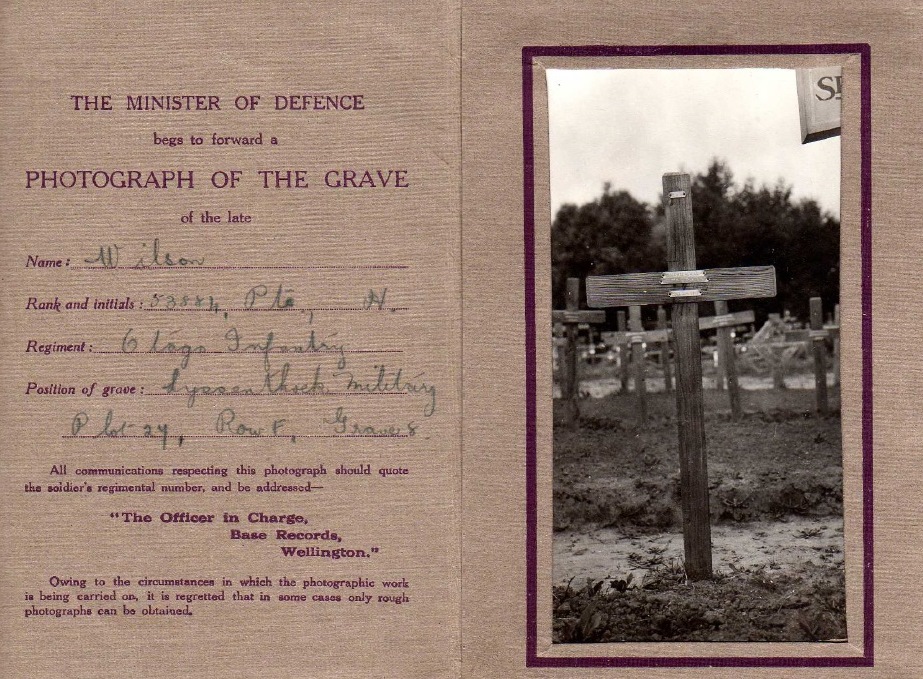 THE MINISTER OF DEFENCE
begs to forward a
PHOTOGRAPH OF THE GRAVE
of the late
Name: Wilson
Rank and initials: 53884, Pte., H.
Regiment: Otago Infantry
Position of grave: Lyssenthoek Military
Plot 24, Row F, Grave 8.
All communications respecting this photograph should quote
the soldier's regimental number, and be addressed—
"The Officer in Charge,
Base Records,
Wellington."
Owing to the circumstances in which the photographic work
is being carried on, it is regretted that in some cases only rough
photographs can be obtained.